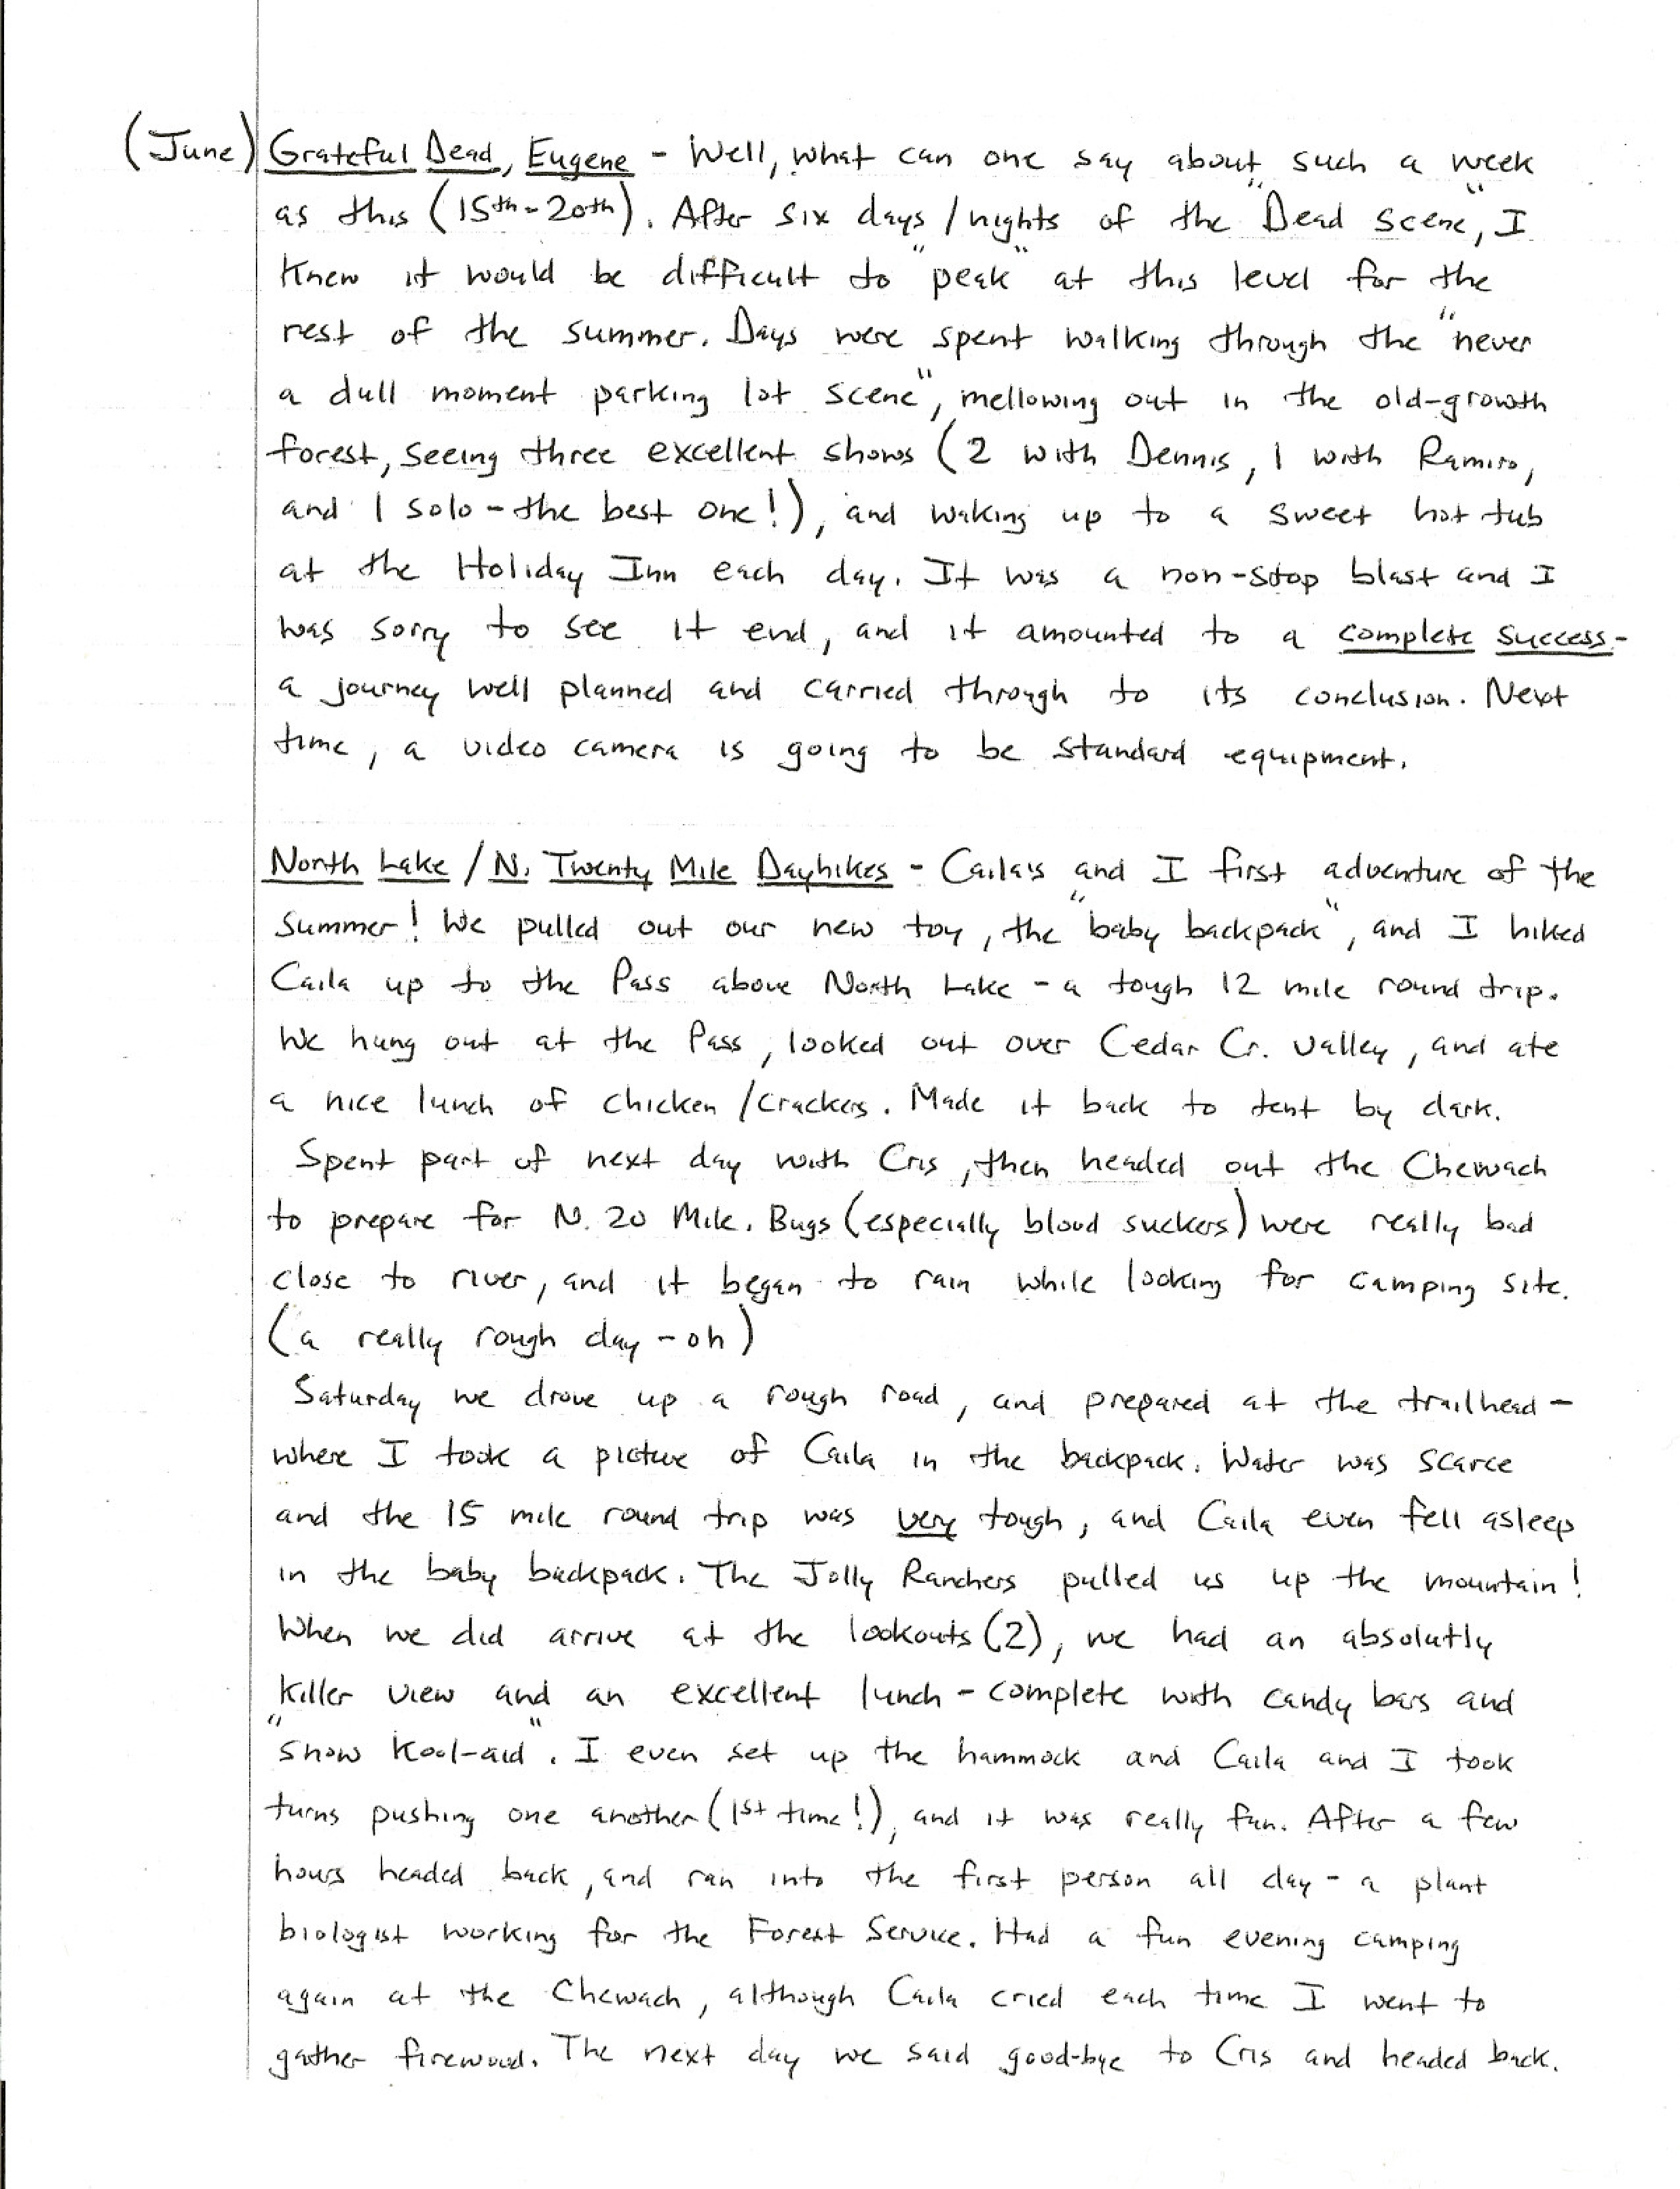 (June) Grateful Dead, Eugene - Well, what can one say about such a week
as this (15th-20th). After six days/nights of the "Dead scene", I
knew it would be difficult to "peak" at this level for the
rest of the summer. Days were spent walking through the "never
a dull moment parking lot scene", mellowing out in the old-growth
forest, seeing three excellent shows (2 with Dennis, 1 with Ramiro,
and 1 solo - the best one!), and waking up to a sweet hot tub
at the Holiday Inn each day. It was a non-stop blast and I
was sorry to see it end, and it amounted to a complete success -
a journey well planned and carried through to its conclusion. Next
time, a video camera is going to be standard equipment.
North Lake / N. Twenty Mile Dayhikes - Caila's and I first adventure of the
summer! We pulled out our new toy, the "baby backpack", and I hiked
Caila up to the Pass above North Lake - a tough 12 mile round trip.
We hung out at the Pass, looked out over Cedar Cr. valley, and ate
a nice lunch of chicken/crackers. Made it back to tent by dark.
Spent part of next day with Cris, then headed out the Chewach
to prepare for N. 20 Mile. Bugs (especially blood suckers) were really bad
close to river, and it began to rain while looking for camping site.
(a really rough day - oh)
Saturday we drove up a rough road, and prepared at the trailhead -
where I took a picture of Caila in the backpack. Water was scarce
and the 15 mile round trip was very tough, and Caila even fell asleep
in the baby backpack. The Jolly Ranchers pulled us up the mountain!
When we did arrive at the lookouts (2), we had an absolutly
killer view and an excellent lunch - complete with candy bars and
"snow kool-aid". I even set up the hammock and Caila and I took
turns pushing one another (1st time!), and it was really fun. After a few
hours headed back, and ran into the first person all day - a plant
biologist working for the Forest Service. Had a fun evening camping
again at the Chewach, although Caila cried each time I went to
gather firewood. The next day we said good-bye to Cris and headed back.